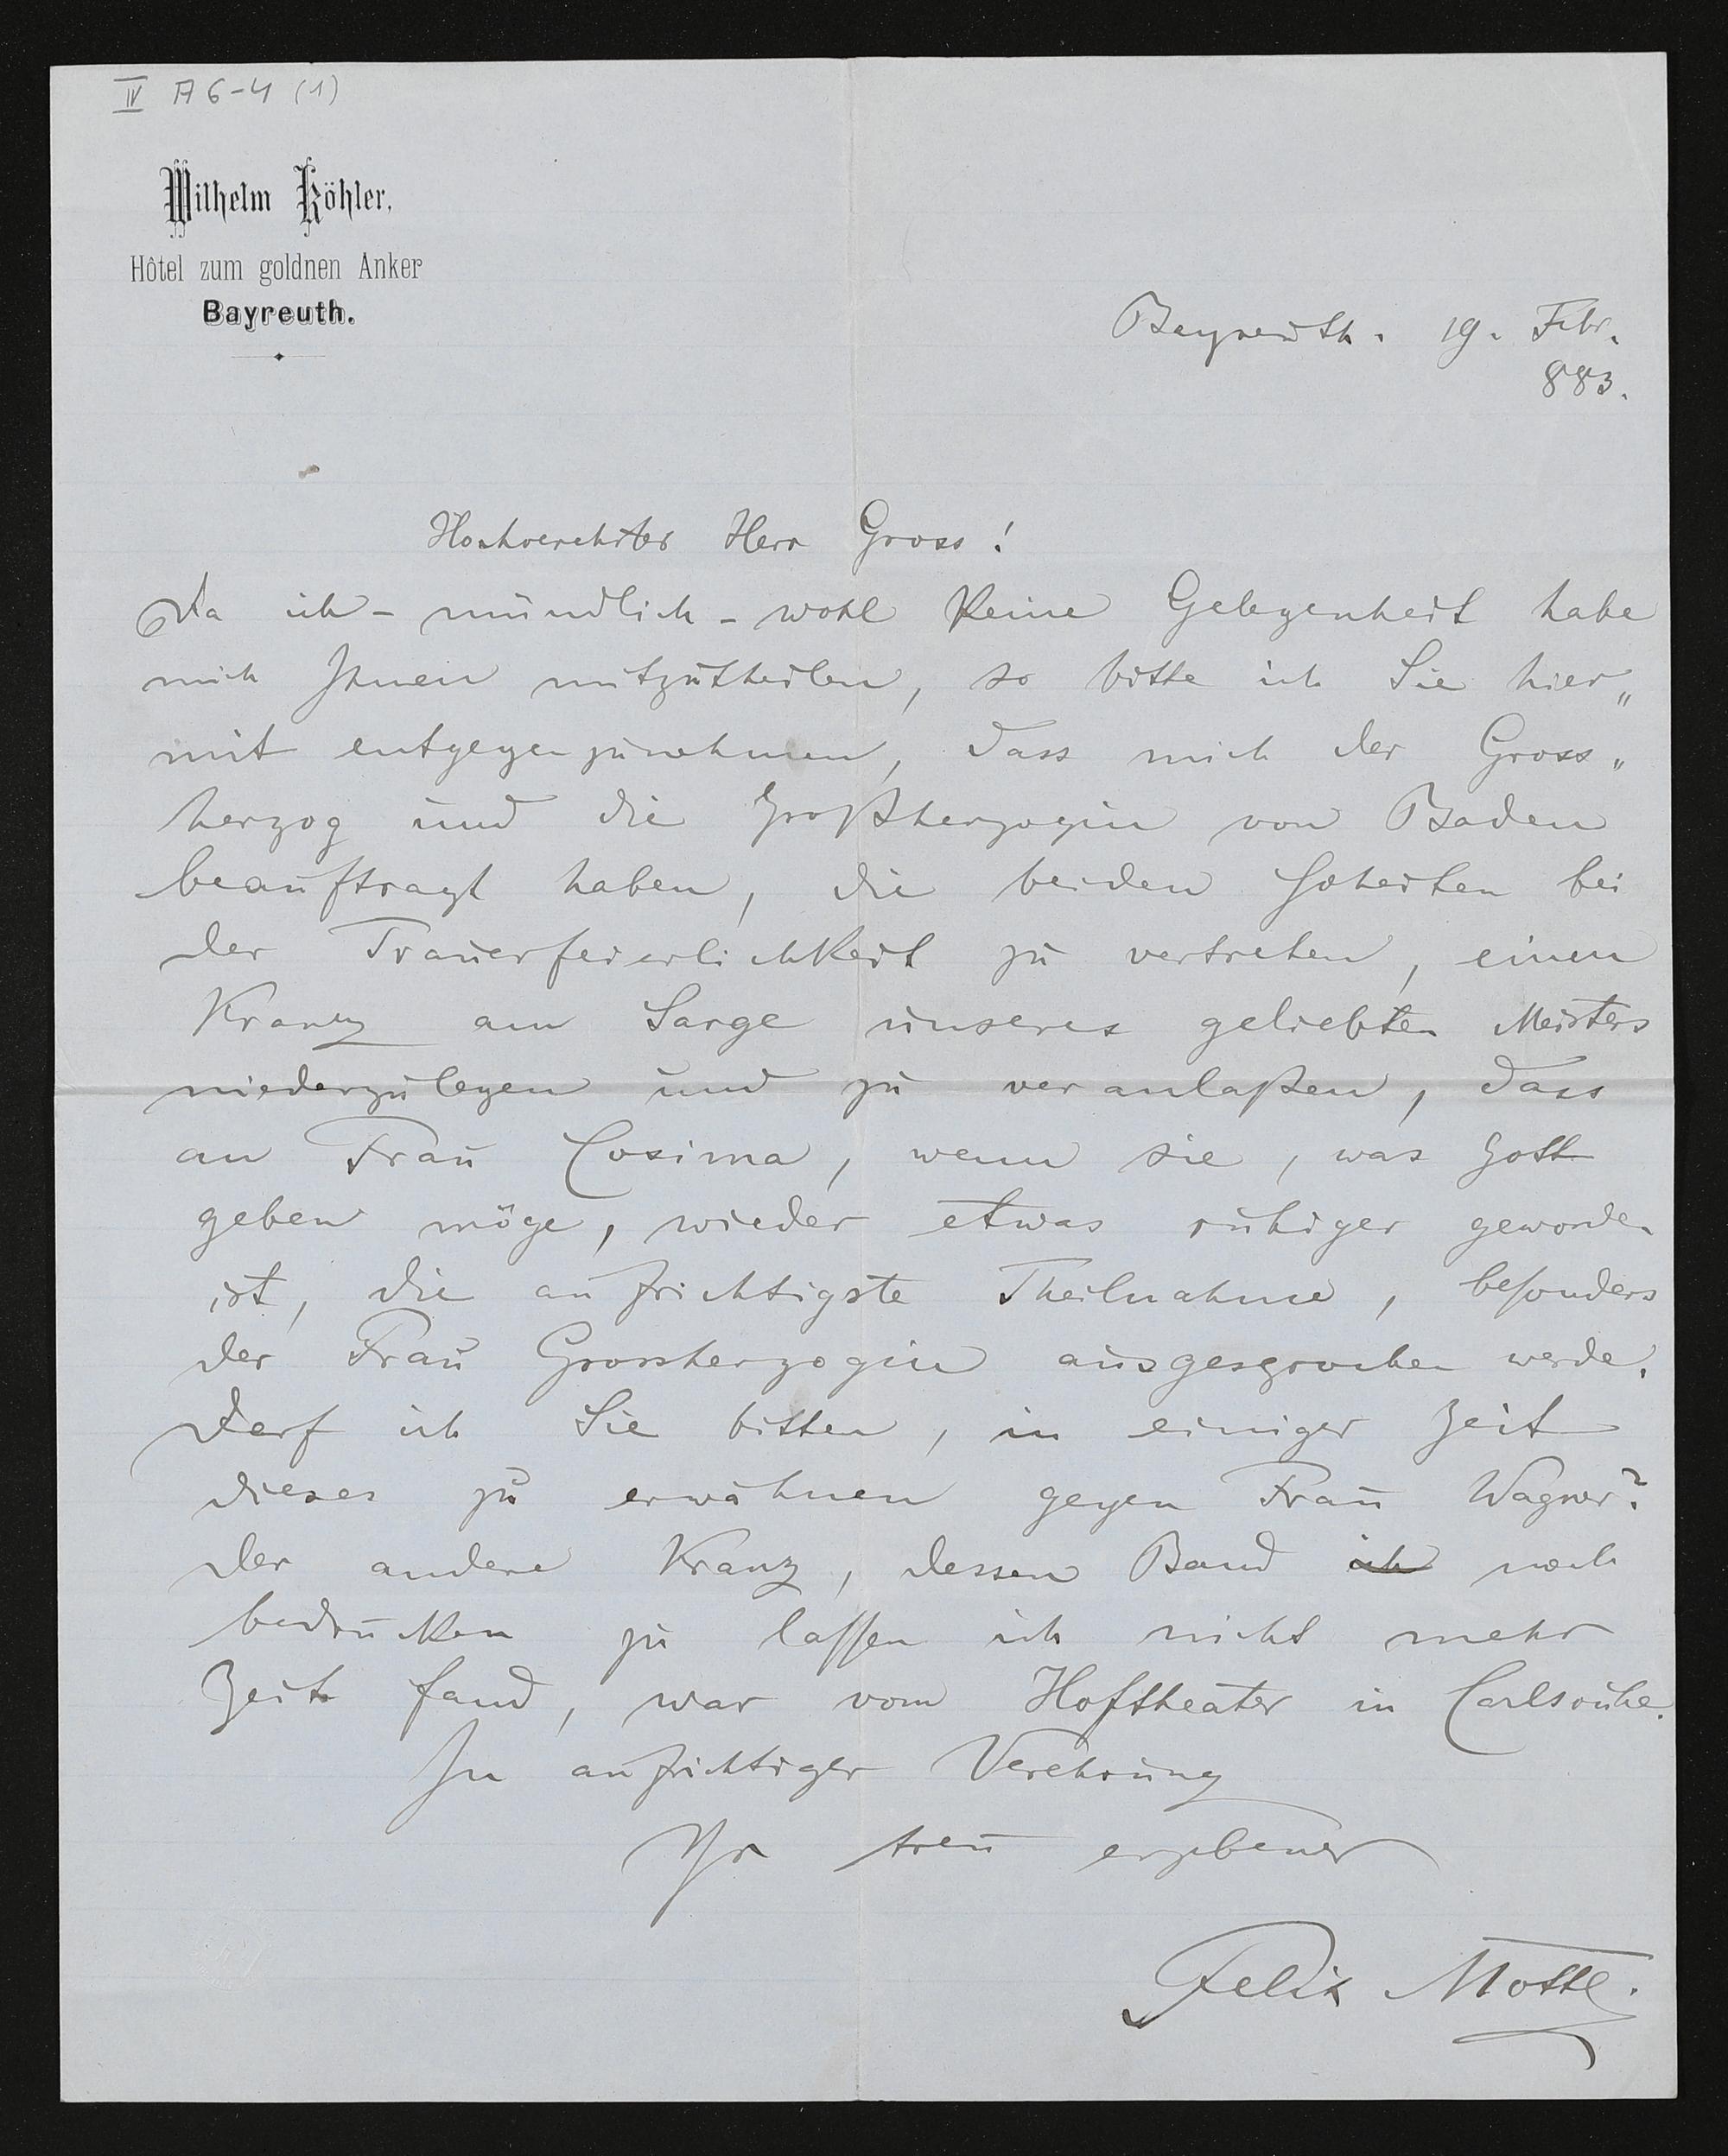 IV A 6-4 (1)
Wilhelm Köhler,
Hôtel zum goldnen Anker
Bayreuth.
Bayreuth. 19. Febr.
883.
Hochverehrter Herr Gross!
Da ich - mündlich - wohl keine Gelegenheit habe
mich Ihnen mitzutheilen, so bitte ich Sie hier„
mit entgegenzunehmen, dass mich der Gross„
herzog und die Großherzogin von Baden
beauftragt haben, die beiden Hoheiten bei
der Trauerfeierlichkeit zu vertreten, einen
Kranz am Sarge unseres geliebten Meisters
niederzulegen und zu veranlaßen, dass
an Frau Cosima, wenn sie, was Gott
geben möge, wieder etwas ruhiger geworden
ist, die aufrichtigste Theilnahme, besonders
der Frau Grossherzogin ausgesprochen werde.
Darf ich Sie bitten, in einiger Zeit
dieses zu erwähnen gegen Frau Wagner?
Der andere Kranz, dessen Band ich noch
bedrucken zu lassen ich nicht mehr
Zeit fand, war vom Hoftheater in Carlsruhe.
In aufrichtiger Verehrung
Ihr treu ergebener
Felix Mottl.